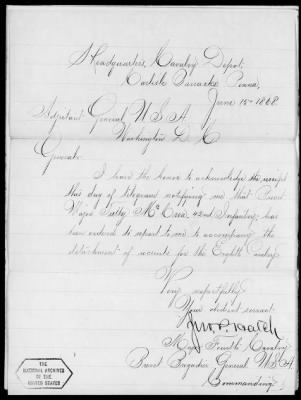 Headquarters, Cavalry Depot,
Carlisle Barracks Penna,
June 15th 1868.
Adjutant General U S A
Washington D. C.
General:
I have the honor to acknowledge the receipt
this day of telegram notifying me that Brevet
Major Tully McCrea, 42nd Infantry, has
been ordered to report to me to accompany the
detachment of recruits for the Eighth Cavalry.
Very respectfully
Your obedient servant
Jno. P. Hatch
Major Fourth Cavalry
Brevet Brigadier General U.S.A.
Commanding
THE
NATIONAL ARCHIVES
OF THE
UNITED STATES